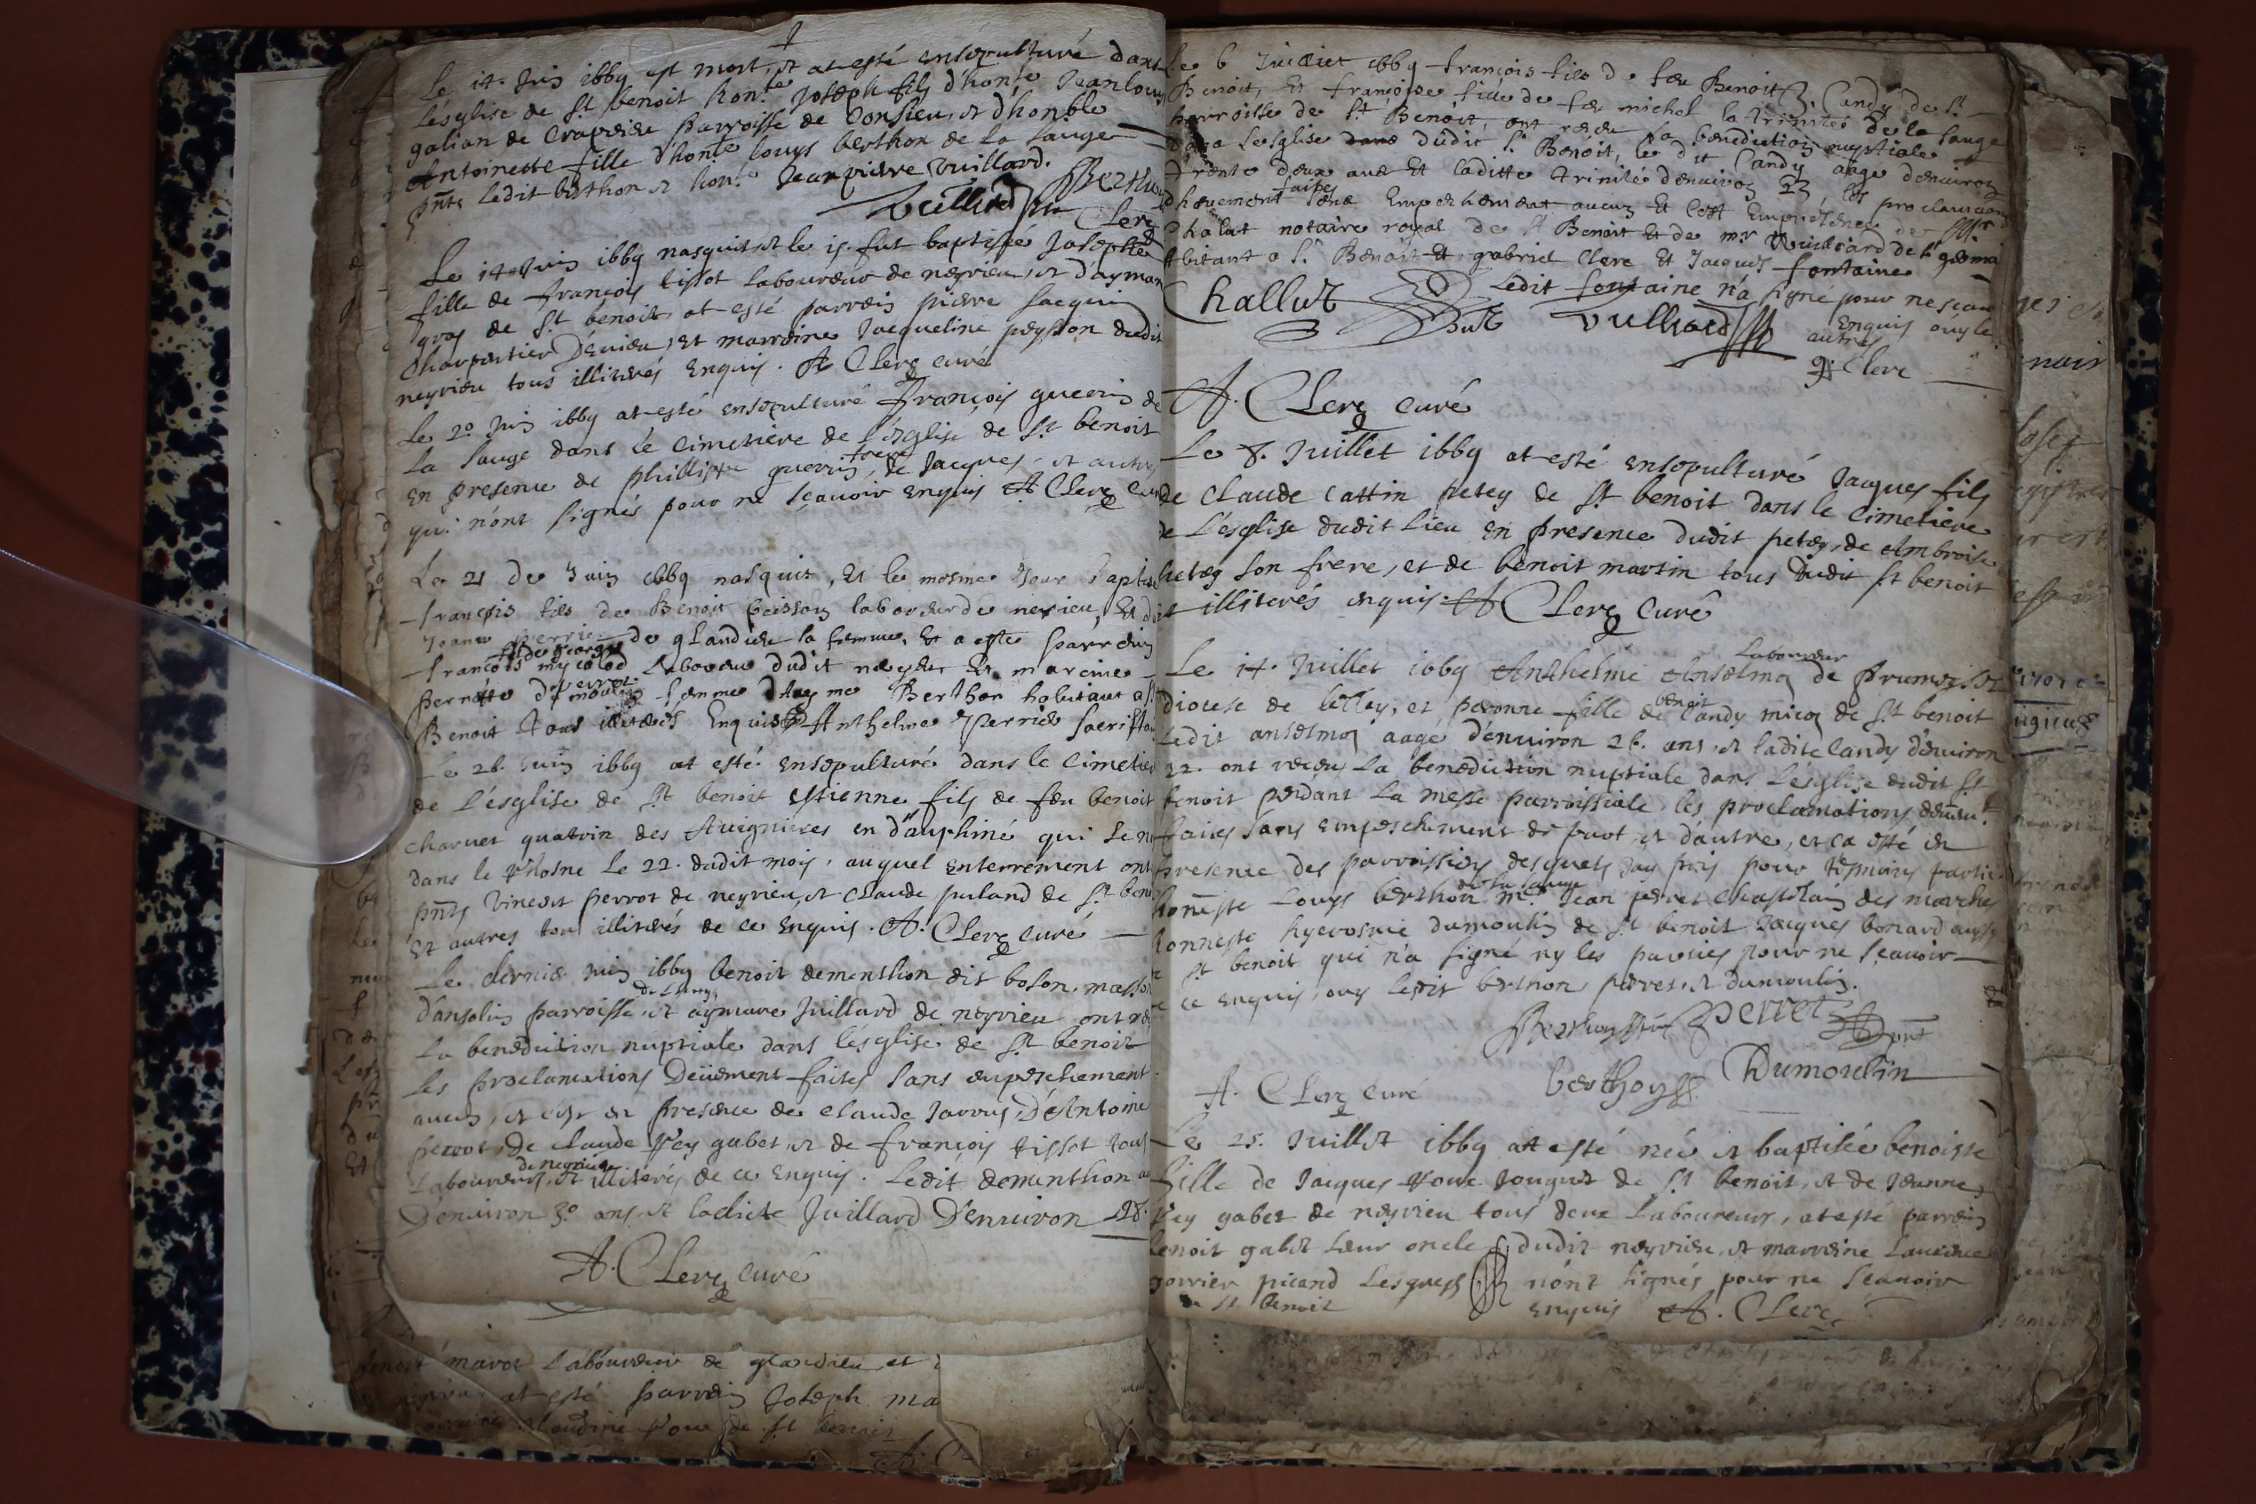 Le 14. Juin 1669 est mort, et at esté ensepulturé dans
l'ésglise de St benoit hon.te Joseph fils d'hon.te Jean louys
galian de Crapdieu parroisse de Consieu, et d'honble
Antoinette fille d'honte louys berthon de la sauge
pnts ledit berthon et hon.te Jean pierre Vuillard.
Berthon
Vulliard
Clerc
Le 14 Juin 1669 nasquit, et le 15. fut baptisée Josephte
fille de françois tissot laboureur de neyrieu, et d'aymar
gros de St benoit, at esté parrein pierre Jacquin
Charpentier Denieu, et marreine Jacqueline peysson dudit
neyrieu tous illiterés Enquis. A Clerc curé
Le 20 Juin 1669 at esté ensepulturé françois guerin de
la sauge dans le cimetiere de l'esglise de St benoit
frere
en presence de phillippe guerin, de Jacques, et autres
qui n'ont signés pour ne sçavoir enquis A Clerc Curé
Le 21 de Juin 1669 nasquit, Et le mesme Jour baptisé
françois fils de Benoit boisson laboureur de nerieu, Et de
Joanne perrie de glandieu sa femme, Et a esté parrein
fils de george
françois mycalod Laboureur dudit neyrieu Et mareine
perrot
pernette dumoulin femme d'Aymé Berthon habitant a St
Benoit tous illiterés Enquis Anthelme Perrier sacristain
Le 26. Juin 1669 at esté ensepulturé dans le cimetiere
de l'ésglise de St benoit Estienne fils de feu benoit
charuet quatrin des Auignieres en d'auphiné qui se n
dans le Rhosne le 22. dudit mois, auquel enterrement ont
pnts vincent perrot de neyrieu, et Claude puland de St benoit
Et autres tous illiterés de ce enquis. A. Clerc curé
Le dernier Juin 1669 benoit dementhon dit boson, masson
de Lhuys
d'ansolin parroisse, et aymare Juillard de neyrieu ont receu
La benediction nuptiale dans l'ésglise de St benoit
les proclamations Deüement faites sans empeschement
aucun, et c'est en presence de claude Jarrus, D'Antoine
perrot, de claude Rey gabet, et de françois tissot tous
de neyrieu
Laboureurs, et illiterés de ce enquis. Ledit dementhon aagé
D'enuiron 30 ans, et ladicte Juillard D'enuiron 28.
A. Clerc curé
benoit marot Laboureur de glandieu et
at esté parrein Joseph ma
claudine Roue de St benoit
Le 6 Juilliet 1669 françois fils de feu Benoit Candy de St
Benoit, Et françoise fille de feu michel la trinité de la sauge
parroisse de St Benoit, ont receu la benediction nuptiale
dans Lesglise dudit St Benoit, le dit Candy aagé denuiron
trente deux ans Et laditte trinité denuiron 23, les proclamations
faites
dheuement sans Empechement aucun Et c'est En presence de Mr
Chalut notaire royal de St Benoit Et de mr Vuilliard de St germain
Abitant a St Benoit Et gabriel Clerc Et Jacques fontaine
Ledit fontaine n'a signé pour ne scauoir
Enquis ouy les
autres
Challut
Vulliard
g. Clerc
A. Clerc curé
Le 8. Juillet 1669 at esté ensepulturé Jacques fils
de Claude Cattin petey de St benoit dans le cimetiere
de L'ésglise dudit lieu en presence dudit petey, de Ambroise
petey son frere, et de benoit martin tous Dudit St benoit
et illiterés enquis. A Clerc Curé
Laboureur
Le 14. Juillet 1669 Anthelme Anselme de prumeisel
benoit
diocese de belley, et peronne fille de Candy micoz de St benoit
Ledit anselme aagé d'enuiron 26. ans, et ladite Candy d'enuiron
22. ont receu La benediction nuptiale dans L'ésglise dudit St
benoit pendant La messe parroissiale, les proclamations deuemt
faites sans empeschement de part, et d'autre, et ca esté en
presence des parroissiens desquels Jay pris pour tesmoins partic
de la sauge
honneste Louys berthon mr. Jean perret chastelain des marches
honneste hyerosme dumoulin de St benoit Jacques bonard aussy
St benoit qui n'a signé ny les parties pour ne sçauoir
de ce enquis, ouy ledit berthon, perret, et dumoulin.
Berthon
Perret
pnt
berthoy
Dumoulin
A. Clerc curé
Le 25. Juillet 1669 at esté née et baptisée benoiste
fille de Jacques Roue Jouguet de St benoit, et de Jeanne
Rey gabet de neyrieu tous deux Laboureurs, at esté parrein
benoit gabet leur oncle dudit neyrieu, et marreine Laurence
gorrier picand Lesquels n'ont signés pour ne sçauoir
de St benoit enquis A. Clerc